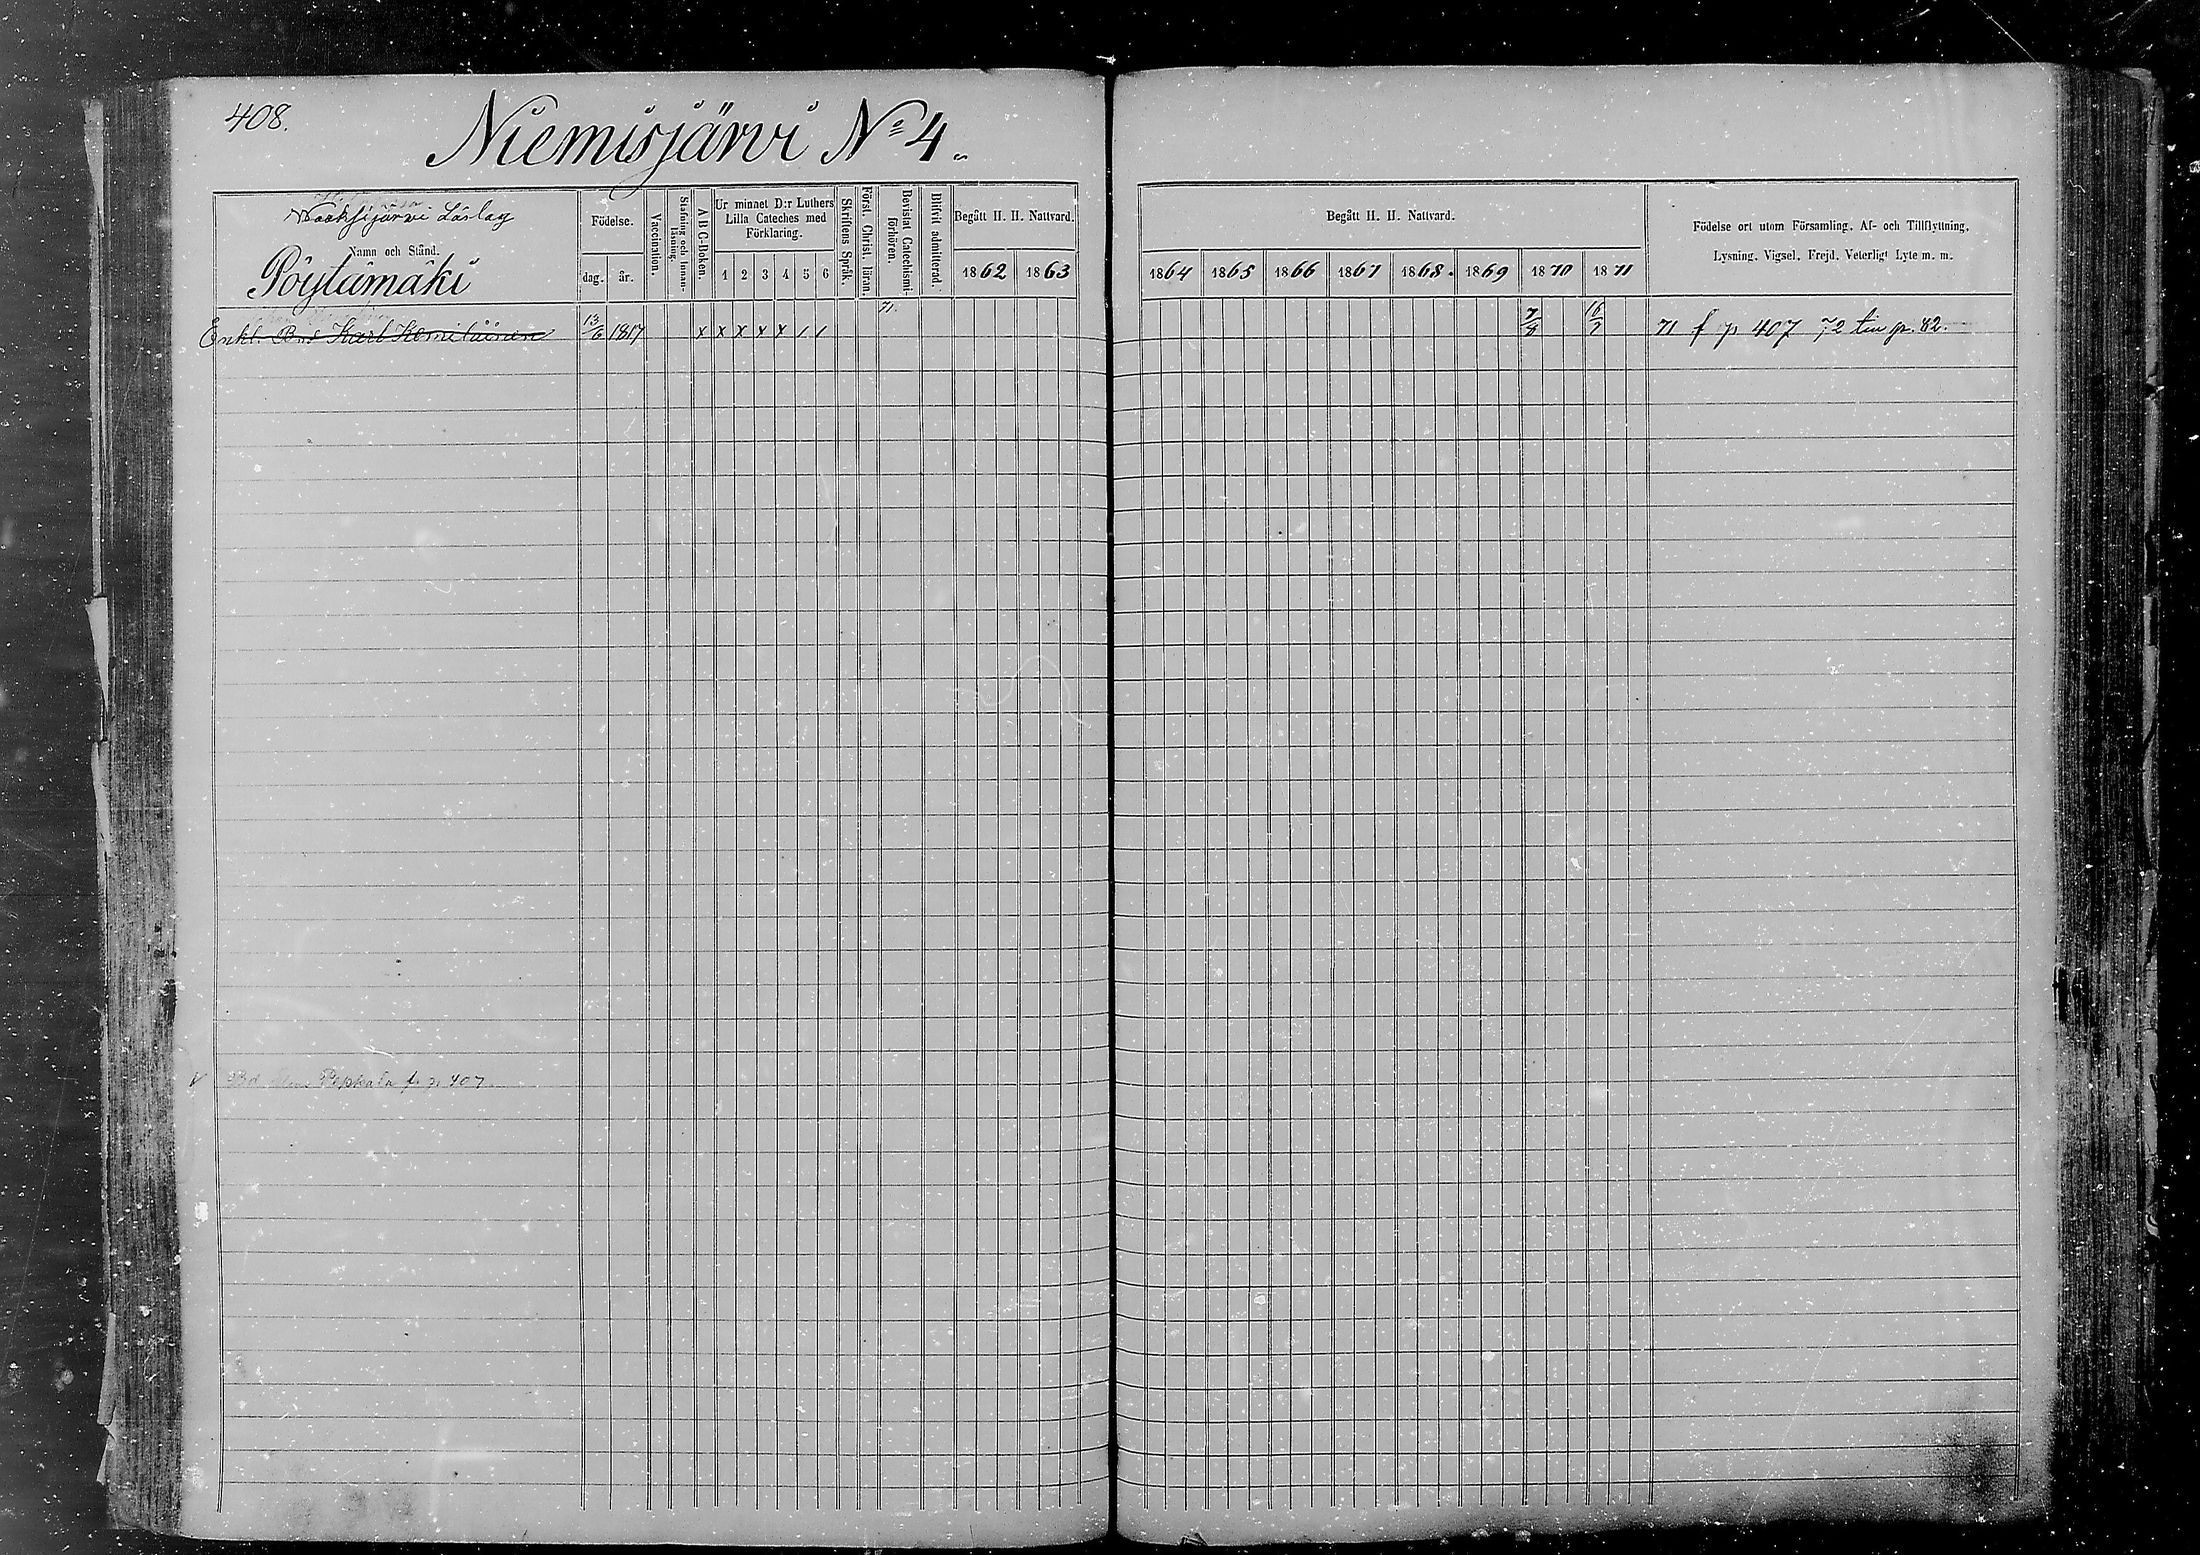 408.
Niemisjärvi No 4.
Wooksijärvi Läslag
Namn och Stånd.
Pöytämäki
Födelse.
dag. år.
Vaccination.
Stafning och innanläsning.
A B C-Boken.
Ur minnet D:r Luthers
Lilla Cateches med
Förklaring.
1 2 3 4 5 6
Skriftens Språk.
Först. Christl. läran.
Bevistat Catechismi-
förhören.
Blifvit admitterad.
Begått H. H. Nattvard.
1862 1863
Begått H. H. Nattvard.
1864 1865 1866 1867 1868. 1869 1870 1871
Födelse ort utom Församling, Af- och Tillflyttning,
Lysning, Vigsel, Frejd, Veterligt Lyte m. m.
71.
Enkl. Karl 13/6 1817 x x x x x / / 7/8 16/7 71 f p 407 72 p. 82.
Bd Pepkala fr p. 407.